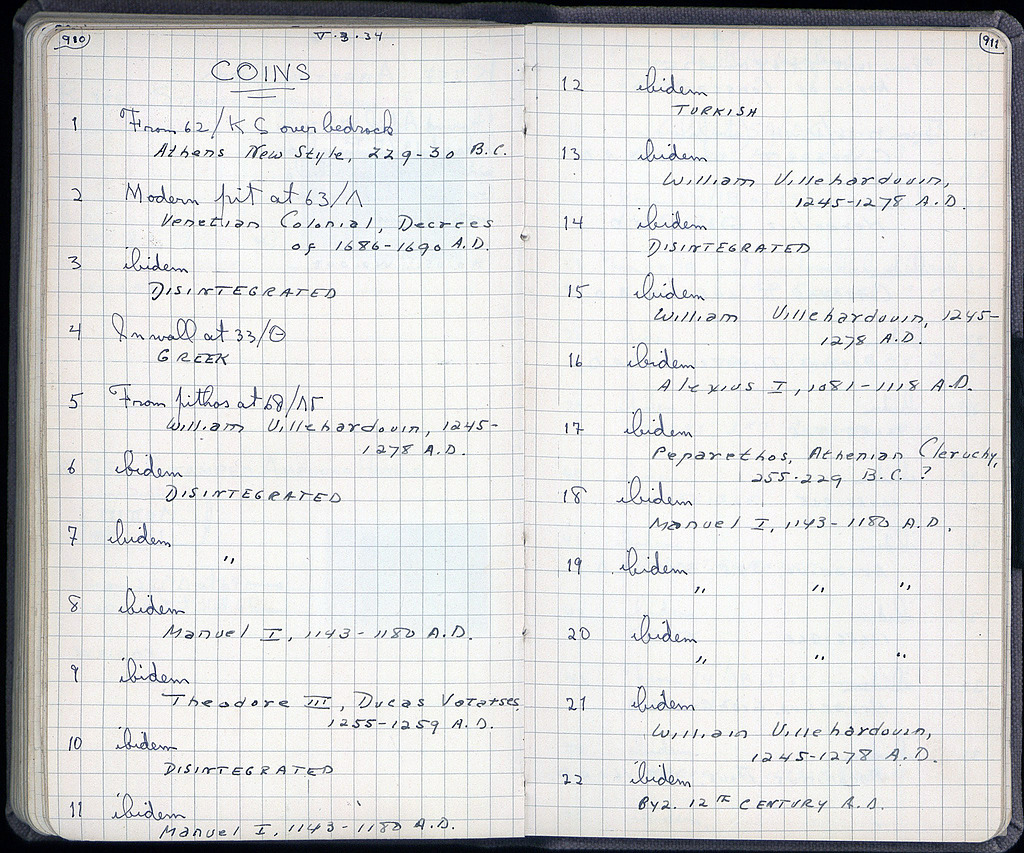 910
V·3·34
COINS
1 From 62/ΚS over bedrock
Athens New Style, 229-30 B.C.
2 Modern pit at 63/Λ
Venetian Colonial, Decrees
of 1686-1690 A.D.
3 ibidem
DISINTEGRATED
4 In wall at 33/Θ
GREEK
5 From pithos at
William Villehardouin, 1245-
1278 A.D.
6 ibidem
DISINTEGRATED
7 ibidem
"
8 ibidem
Manuel I, 1143-1180 A.D.
9 ibidem
Theodore III, Ducas Vatatses,
1255-1259 A.D.
10 ibidem
DISINTEGRATED
11 ibidem
Manuel I, 1143-1180 A.D.
911
12 ibidem
TURKISH
13 ibidem
William Villehardouin,
1245-1278 A.D.
14 ibidem
DISINTEGRATED
15 ibidem
William Villehardouin, 1245-
1278 A.D.
16 ibidem
Alexius I, 1081-1118 A.D.
17 ibidem
Peparethos, Athenian Cleruchy,
255-229 B.C. ?
18 ibidem
Manuel I, 1143-1180 A.D.
19 ibidem
" " "
20 ibidem
" " "
21 ibidem
William Villehardouin,
1245-1278 A.D.
22 ibidem
BYZ. 12TH CENTURY A.D.